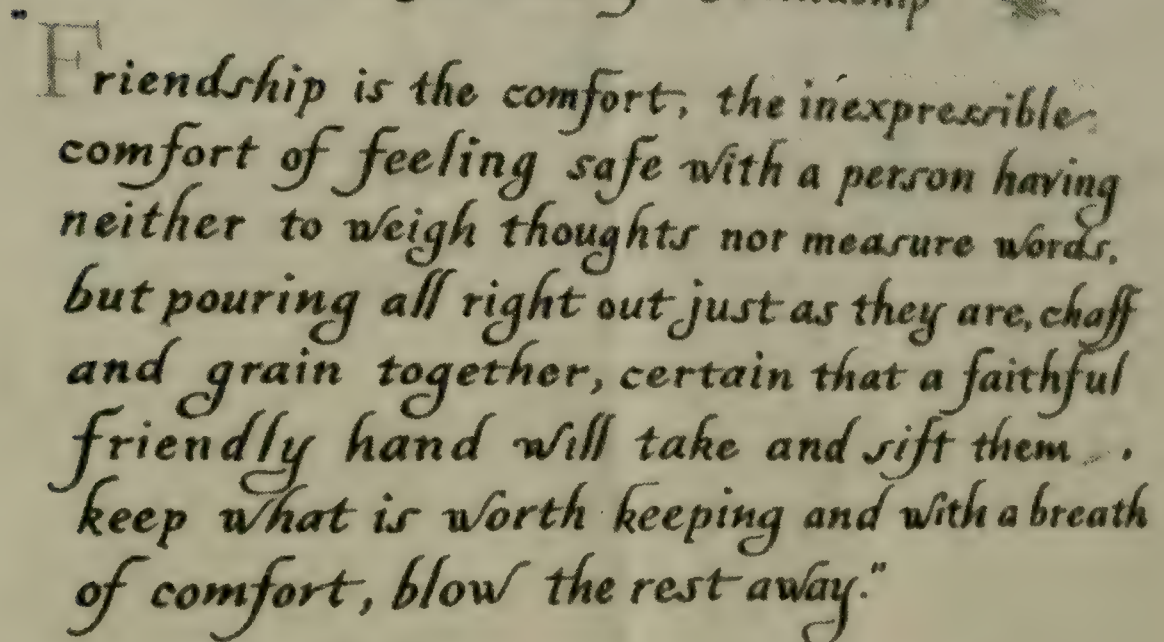 "Friendship is the comfort, the inexpressible
comfort of feeling safe with a person having
neither to weigh thoughts nor measure words,
but pouring all right out just as they are, chaff
and grain together, certain that a faithful
friendly hand will take and sift them
keep what is worth keeping and with a breath
of comfort, blow the rest away."